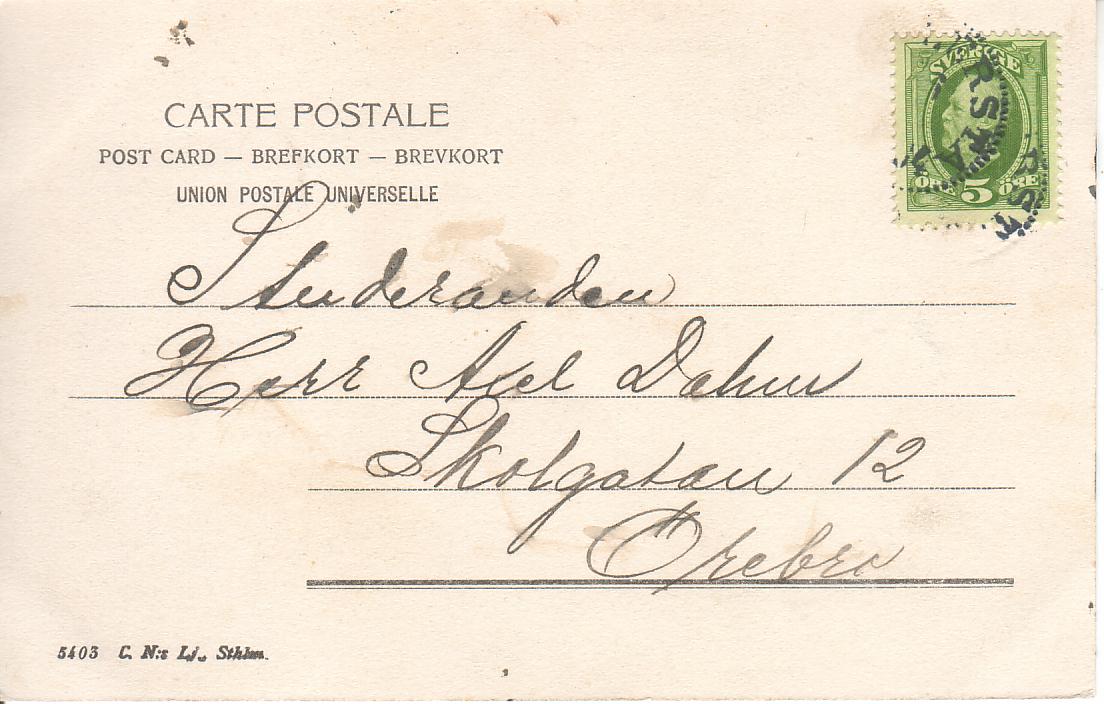 CARTE POSTALE
POST CARD — BREFKORT — BREVKORT
UNION POSTALE UNIVERSELLE
SVERIGE
ÖRE 5 ÖRE
Studeranden
Herr Axel Dahm
Skolgatan 12
Örebro
5403 C. N:s Lj., Sthlm.